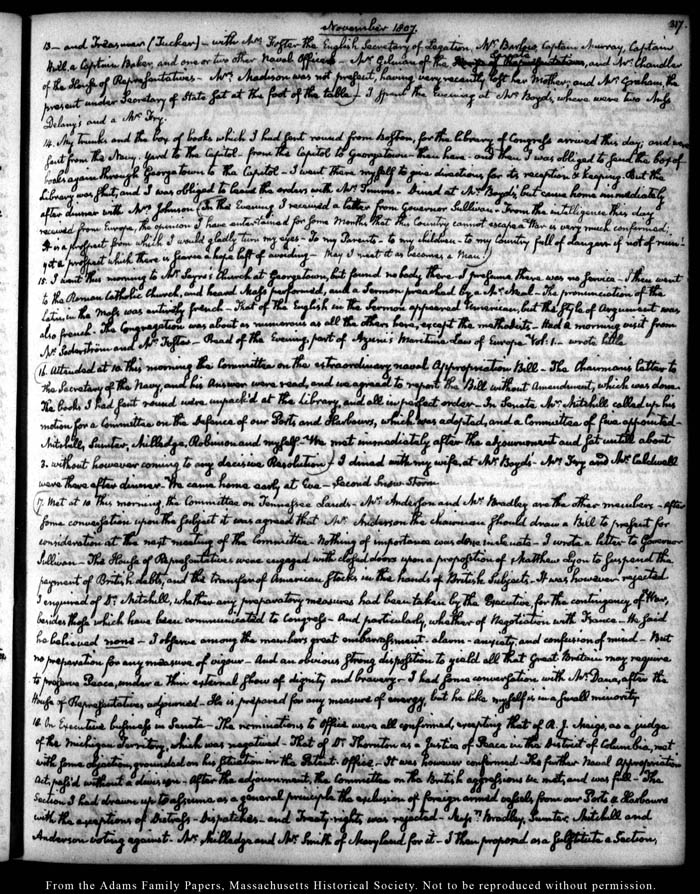 November 1807.
317.
13 - and Treasurer (Tucker) - with Mrs. Foster the English Secretary of Legation, Mr. Barlow, Captain Murray, Captain
Hull, a Captain Baker, and one or two other Naval Officers - Mr. Gilman of the Senate, and Mr. Chandler
of the House of Representatives - Mrs. Madison was not present, having very recently lost her Mother; and Mr. Graham, the
present under Secretary of State sat at the foot of the table) - I spent the Evening at Mr. Boyd's, where were two Miss
Delany's and a Mr. Fry.
14. My trunks and the box of books which I had sent round from Boston, for the library of Congress arrived this day; and were
sent from the Navy-Yard to the Capitol - from the Capitol to Georgetown - then here - and then I was obliged to send the box of
books again through Georgetown to the Capitol - I went there myself to give directions for its reception & keeping. But the
Library was shut, and I was obliged to leave the orders with Mr. Timms - Dined at Mr. Boyd's, but came home immediately
after dinner with Mrs. Johnson (In the Evening I received a letter from Governor Sullivan - From the intelligence this day
received from Europe, the opinion I have entertained for some Months that this Country cannot escape a War is very much confirmed;
It is a prospect from which I would gladly turn my eyes - To my Parents - to my children - to my Country full of danger if not of ruin:
yet a prospect which there is scarce a hope left of avoiding - May I meet it as becomes a Man.)
15. I went this morning to Mr. Sayrs's Church at Georgetown, but found nobody there - I presume there was no service - I then went
to the Roman Catholic Church, and heard Mass performed, and a Sermon preached by a Mr. Neal - The pronunciation of the
Latin in the Mass was entirely french - That of the English in the Sermon appeared American, but the style of Argument was
also french. The Congregation was about as numerous as all the others here, except the methodists - Had a morning visit from
Mr. Soderstrom and Mr. Foster - Read of the Evening, part of Azuni's Maritime Law of Europe Vol: 1. - wrote little
(16. Attended at 10 this morning the Committee on the extraordinary naval Appropriation Bill - The Chairman's letter to
the Secretary of the Navy, and his Answer were read, and we agreed to report the Bill without Amendment, which was done -
The books I had sent round were unpack'd at the Library, and all in perfect order - In Senate Mr. Mitchill called up his
motion for a Committee on the Defence of our Ports and Harbours, which was adopted, and a Committee of five appointed -
Mitchill, Sumter, Milledge, Robinson and myself. We met immediately after the adjournment and sat until about
3. without however coming to any decisive Resolution) - I dined with my wife, at Mr. Boyd's - Mr. Fry and Mr. Caldwell
were there after dinner - We came home early at Eve - Second Snow Storm
(17. Met at 10 this morning, the Committee on Tennessee Lands - Mr. Anderson and Mr. Bradley are the other members - After
some conversation upon the subject it was agreed that Mr. Anderson the chairman should draw a Bill to present for
consideration at the next meeting of the Committee. Nothing of importance was done in Senate - I wrote a letter to Governor
Sullivan - The House of Representatives were engaged with closed doors upon a proposition of Matthew Lyon to suspend the
payment of British debts, and the transfer of American stocks in the hands of British Subjects. It was however rejected
I enquired of Dr. Mitchill, whether any preparatory measures had been taken by the Executive, for the contingency of War,
besides those which have been communicated to Congress - And particularly, whether of Negotiation with France - He said
he believed none - I observe among the members great embarrassment - alarm - anxiety, and confusion of mind - But
no preparation for any measure of vigour - And an obvious strong disposition to yield all that Great Britain may require
to preserve Peace, under a thin external show of dignity and bravery - I had some conversation with Mr. Dana, after the
House of Representatives adjourned - He is prepared for any measure of energy, but he like myself is in a small minority
18. On Executive business in Senate - The nominations to Office were all confirmed, excepting that of R. J. Meigs, as a judge
of the Michigan Territory, which was negatived - That of Dr. Thornton as a Justice of Peace in the District of Columbia, met
with some objection, grounded on his situation in the Patent-Office - It was however confirmed - The further Naval Appropriation
Act, pass'd without a division - After the adjournment, the Committee on the British aggressions &c. met, and was full - The
section I had drawn up to assume as a general principle the exclusion of foreign armed vessels from our Ports & Harbours
with the exceptions of Distress - Dispatches - and Treaty-rights, was rejected - Messrs. Bradley, Sumter, Mitchill and
Anderson voting against - Mr. Milledge and Mr. Smith of Maryland for it - I then proposed as a substitute a Section,
From the Adams Family Papers, Massachusetts Historical Society. Not to be reproduced without permission.